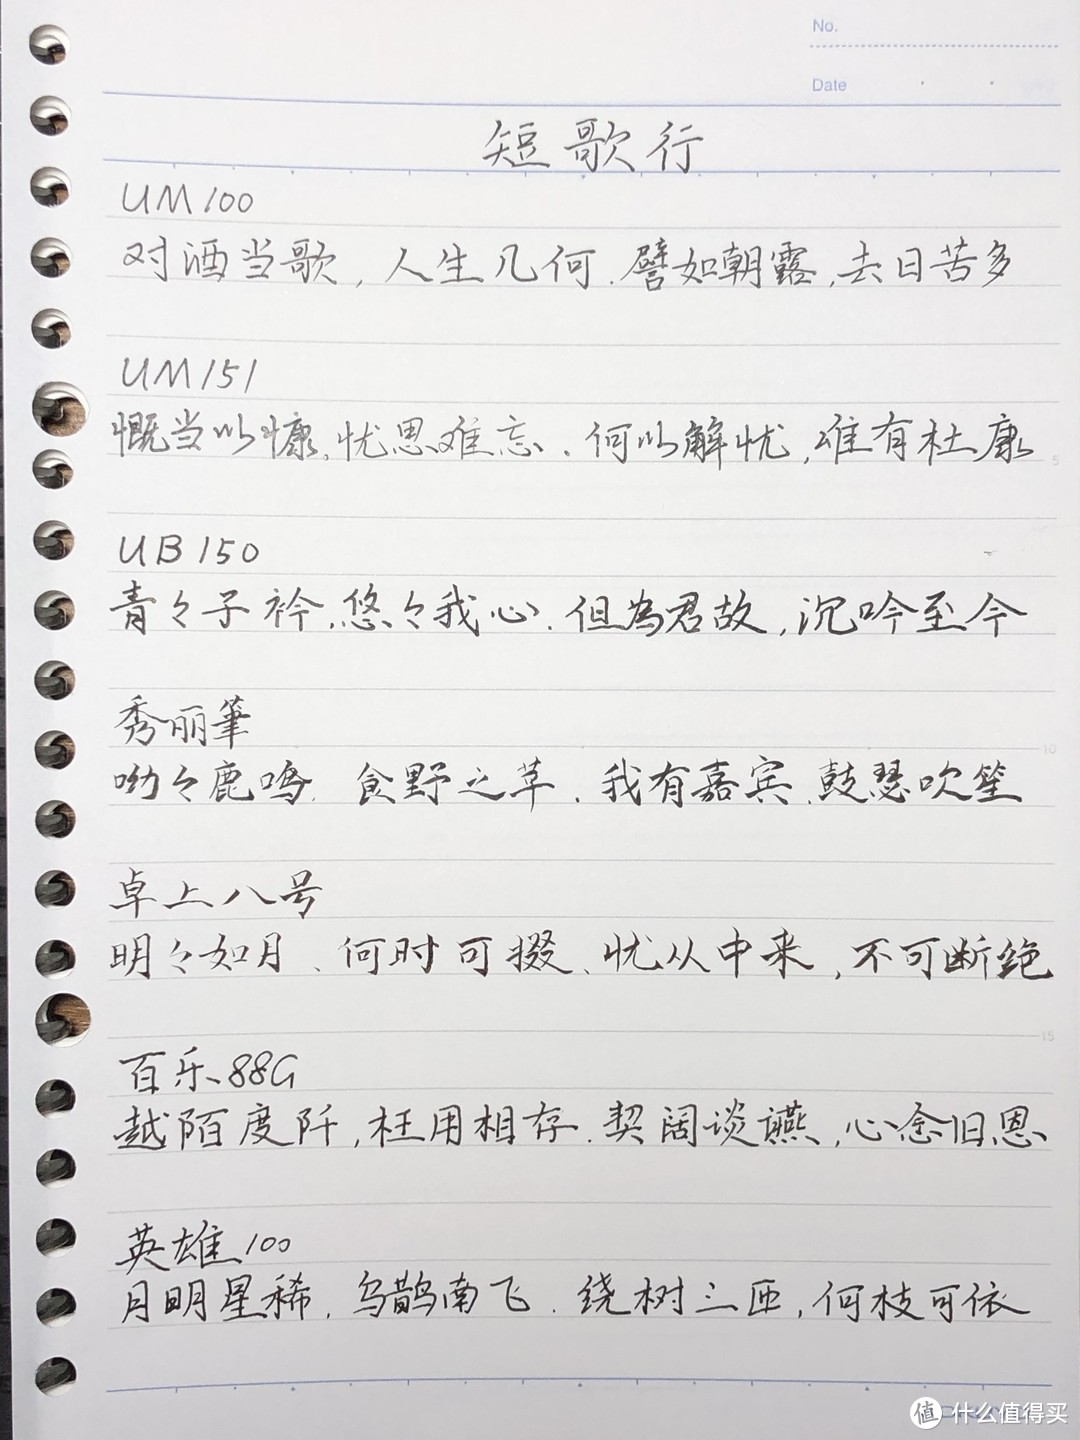 No.
Date
短歌行
UM100
对酒当歌,人生几何.譬如朝露,去日苦多
UM151
慨当以慷,忧思难忘.何以解忧,唯有杜康
5
UB150
青々子衿,悠々我心.但為君故,沉吟至今
秀丽筆
10
呦々鹿鸣.食野之苹.我有嘉宾.鼓瑟吹笙
卓上八号
明々如月、何时可掇、忧从中来,不可断绝
15
百乐88G
越陌度阡,枉用相存.契阔谈讌,心念旧恩
英雄100
月明星稀.乌鹊南飞.绕树三匝,何枝可依
值 什么值得买